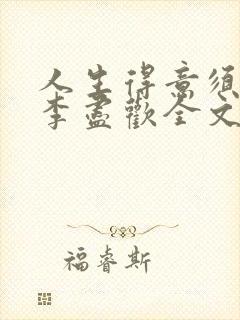 人生得意须
李盡歡全文
福睿斯